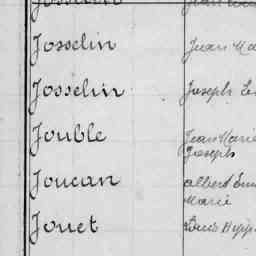 Josselin Jean Ma
Josselin Joseph
Jouble Jean Marie
Joseph
Joucan Albert
Marie
Jouet Louis Hipp